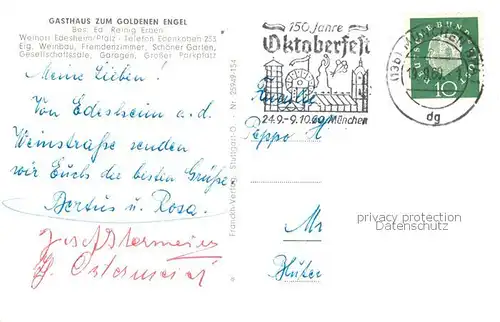 GASTHAUS ZUM GOLDENEN ENGEL
Bes. Ed. Reinig Erben
Weinort Edesheim/Pfalz - Telefon Edenkoben 253
Eig. Weinbau, Fremdenzimmer, Schöner Garten,
Gesellschaftssäle, Garagen, Großer Parkplatz
Meine Lieben!
Von Edesheim a. d.
Weinstraße senden
wir Euch die besten Grüße
Bertus u. Rosa.
Josef Ostermeier
H. Ostermeier
Franckh-Verlag, Stuttgart-O. - Nr. 25949-154
150 Jahre
Oktoberfest
24.9.-9.10.60 München
DEUTSCHE BUNDESPOST
10
(13b) MÜNCHEN
dg
Familie
Peppo H
Mü
privacy protection
Datenschutz